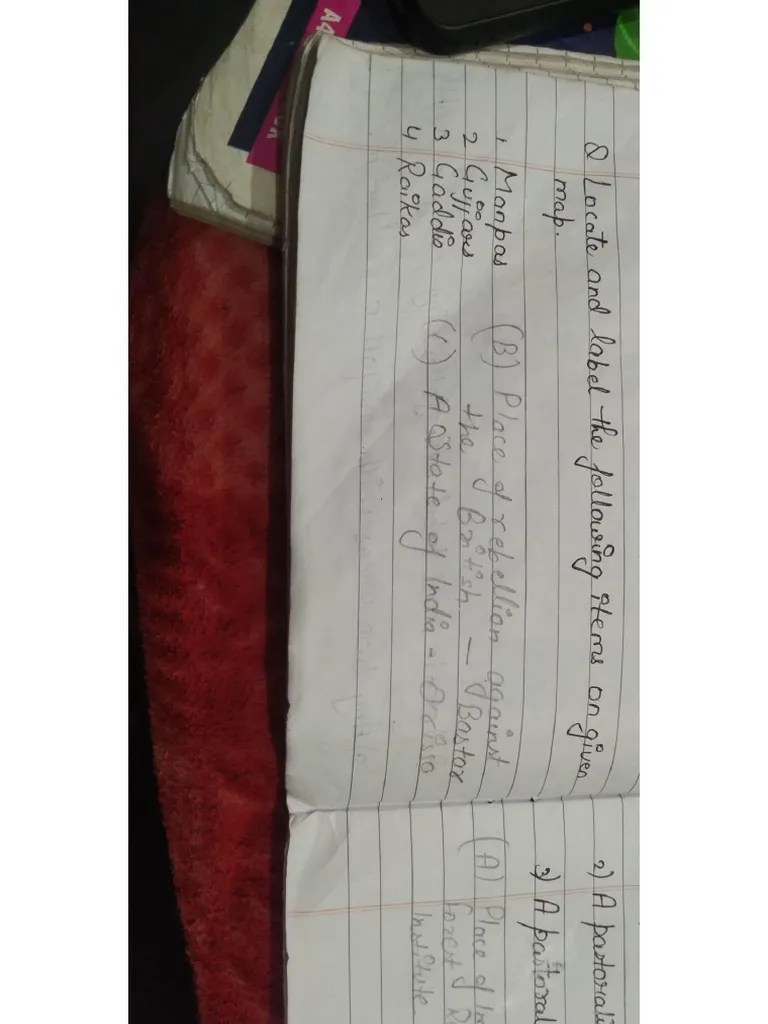 Q Locate and label the following items on given
map.
1 Monpas
2 Gujjars
3 Gaddis
4 Raikas
(B) Place of rebellion against
the British — Bastar
(C) A State of India - Orissa
2) A pastorali
3) A pastoral
(A) Place of
forest
Institute